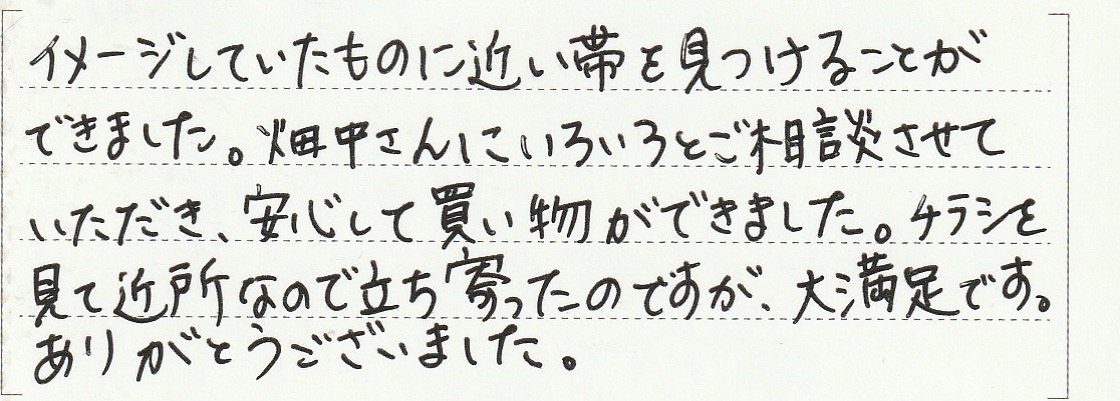 イメージしていたものに近い帯を見つけることが
できました。畑中さんにいろいろとご相談させて
いただき、安心して買い物ができました。チラシを
見て近所なので立ち寄ったのですが、大満足です。
ありがとうございました。